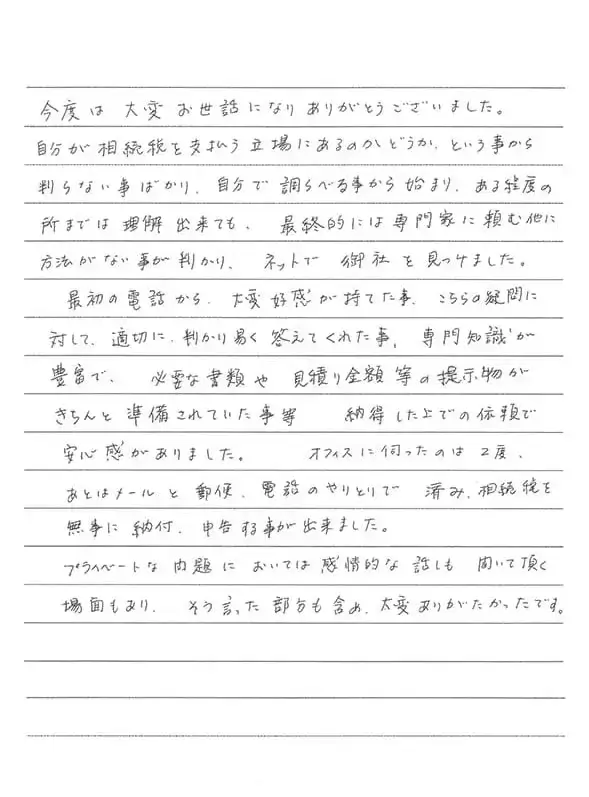 今度は 大変 お世話になり ありがとうございました。
自分が 相続税を支払う 立場にあるのかどうか、という事から
判らない事ばかり、自分で 調らべる事から 始まり、ある程度の
所までは 理解 出来ても、 最終的には 専門家に 頼む他に
方法がない事が判かり、 ネットで 御社 を 見つけました。
最初の電話から、大変好感が持てた事、こちらの疑問に
対して、適切に、判かり易く 答えてくれた事、専門知識が
豊富で、 必要な書類や 見積り金額 等の提示物が
きちんと 準備されていた事等 納得した上での依頼で
安心感がありました。 オフィスに伺ったのは 2度、
あとはメールと 郵便、電話のやりとりで 済み、相続税を
無事に 納付、申告する事が出来ました。
プライベートな 内題に おいては 感情的な 話しも 聞いて頂く
場面もあり、 そう言った 部分も含め、大変ありがたかったです。